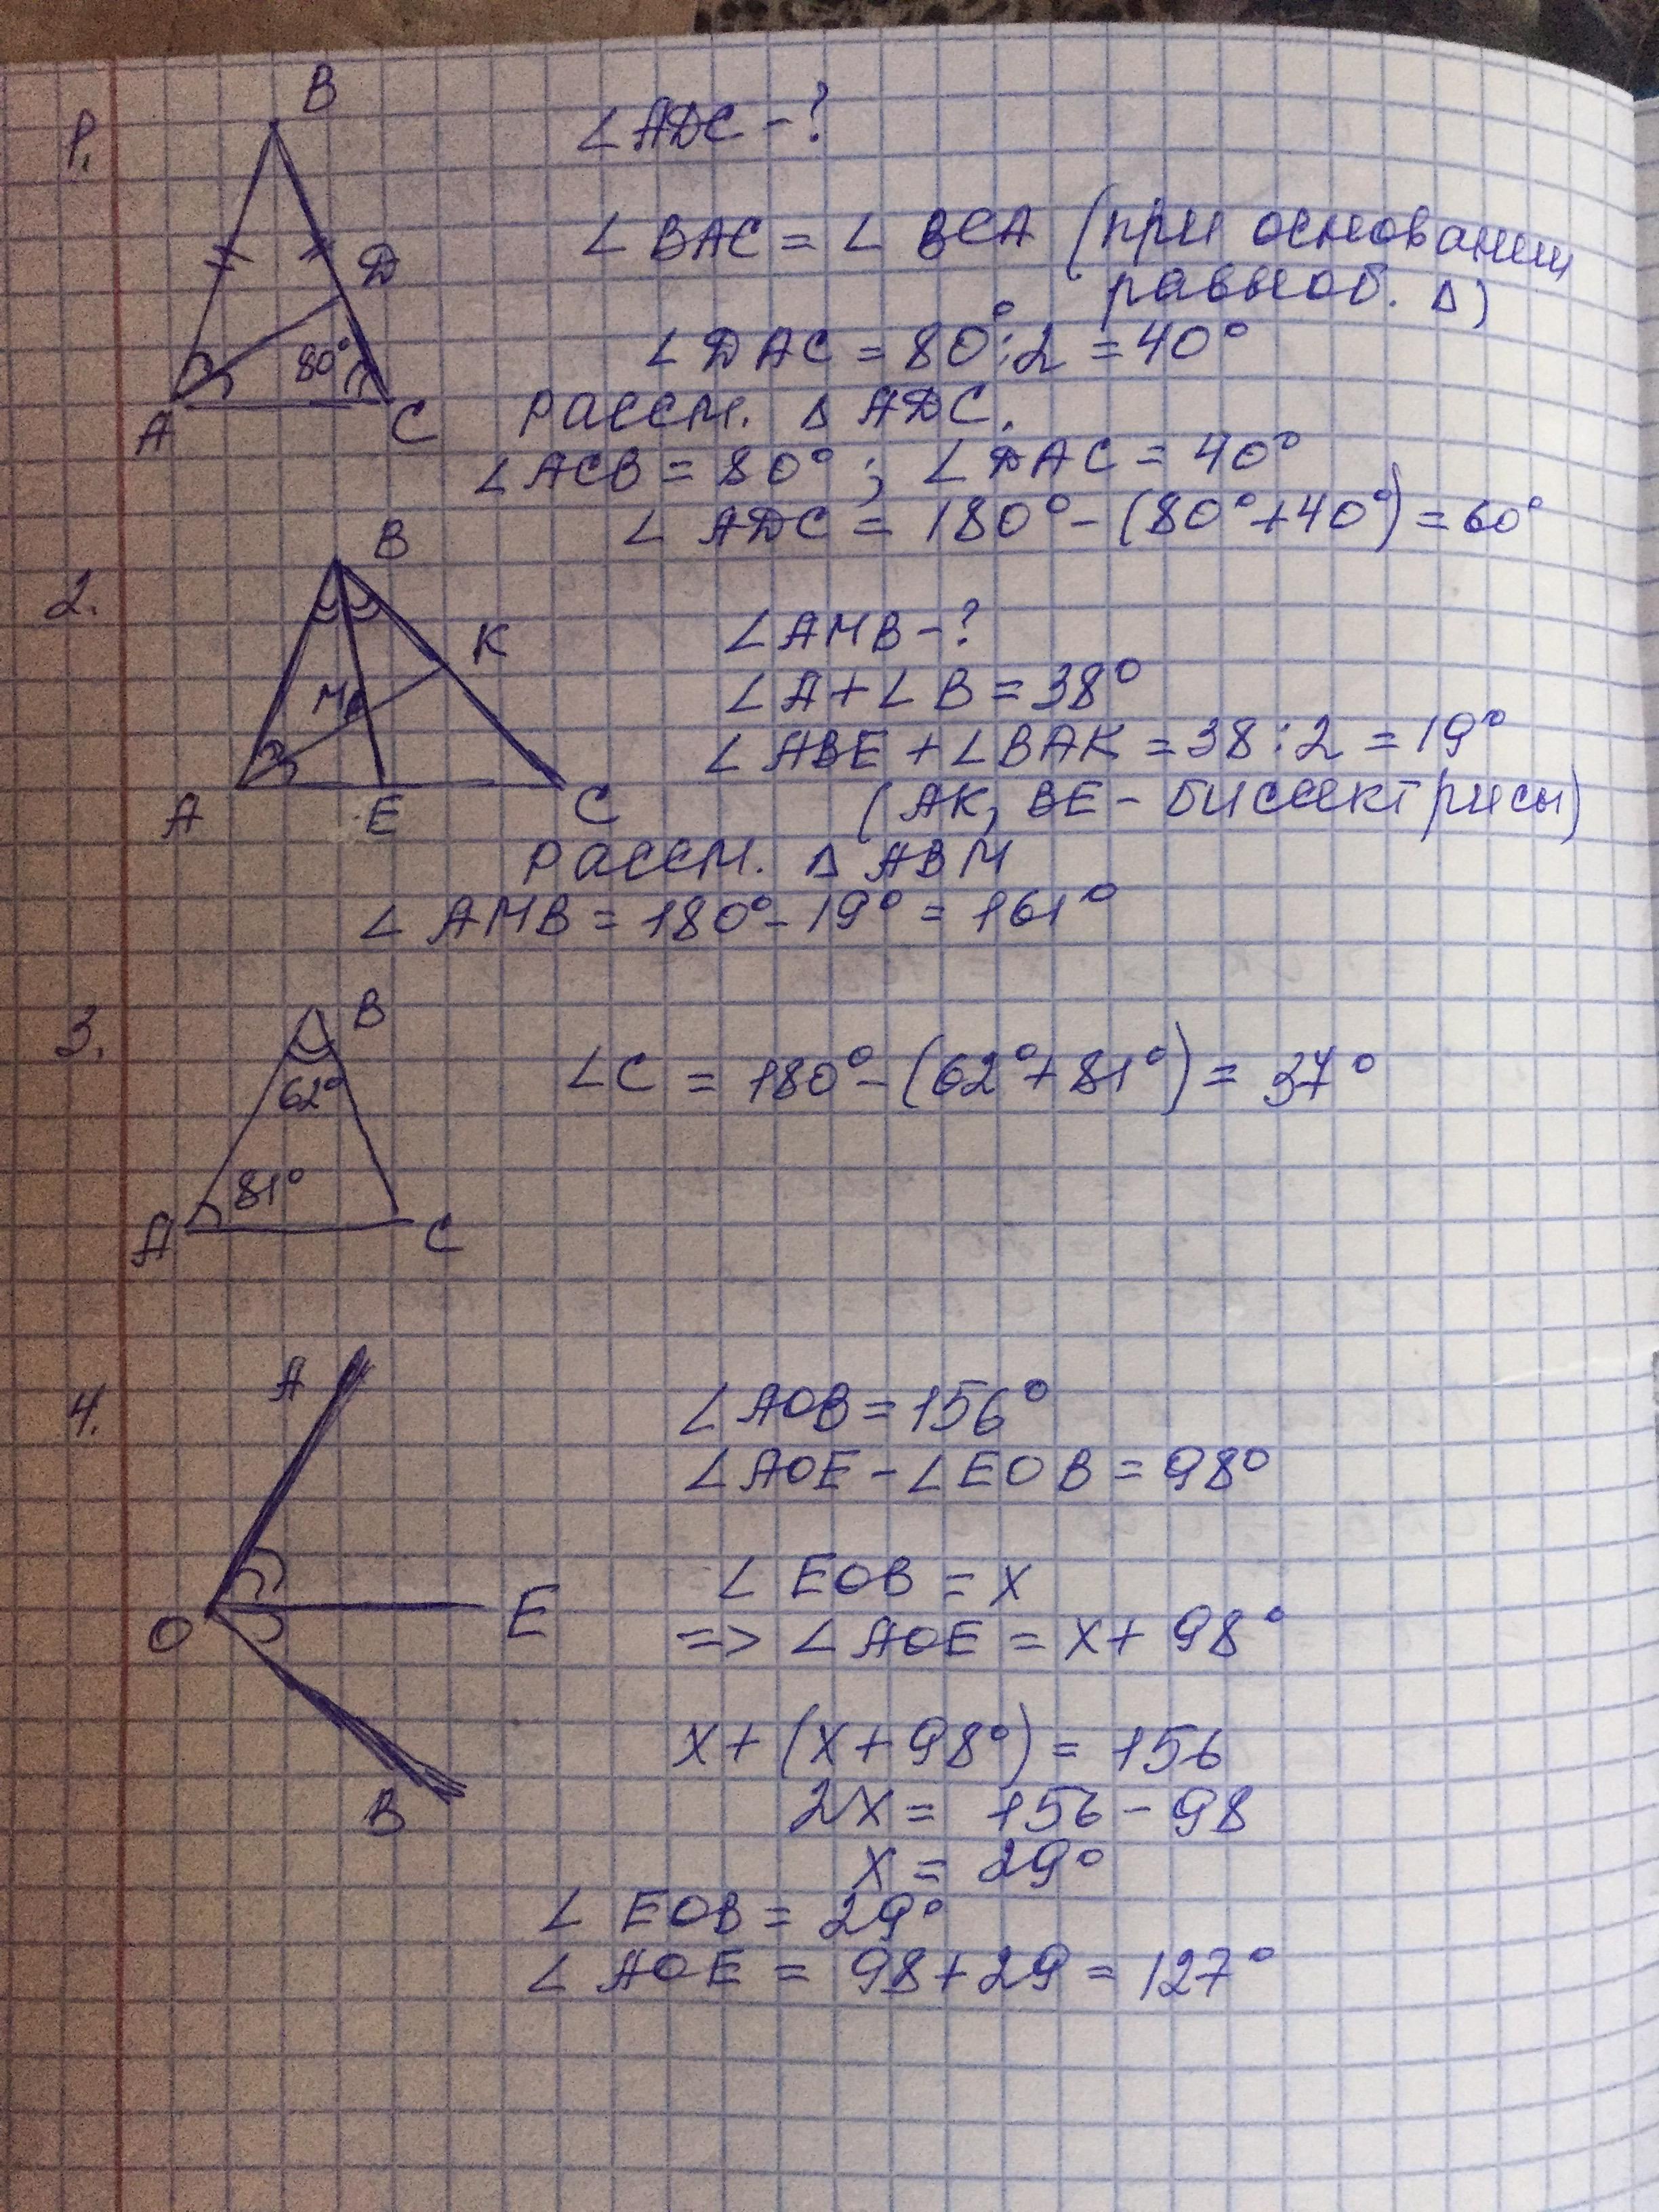 1.
B
∠ADC - ?
∠BAC = ∠BCA (при основании
равноб. Δ)
D
80°
A
C
∠DAC = 80° : 2 = 40°
Рассм. Δ ADC.
∠ACB = 80° ; ∠DAC = 40°
∠ADC = 180° - (80° + 40°) = 60°
2.
B
K
M
A
E
C
∠AMB - ?
∠A + ∠B = 38°
∠ABE + ∠BAK = 38 : 2 = 19°
(AK, BE - биссектрисы)
Рассм. Δ ABM
∠AMB = 180° - 19° = 161°
3.
B
62°
81°
A
C
∠C = 180° - (62° + 81°) = 37°
4.
A
O
E
B
∠AOB = 156°
∠AOE - ∠EOB = 98°
∠EOB = x
=> ∠AOE = x + 98°
x + (x + 98°) = 156
2x = 156 - 98
x = 29°
∠EOB = 29°
∠AOE = 98 + 29 = 127°